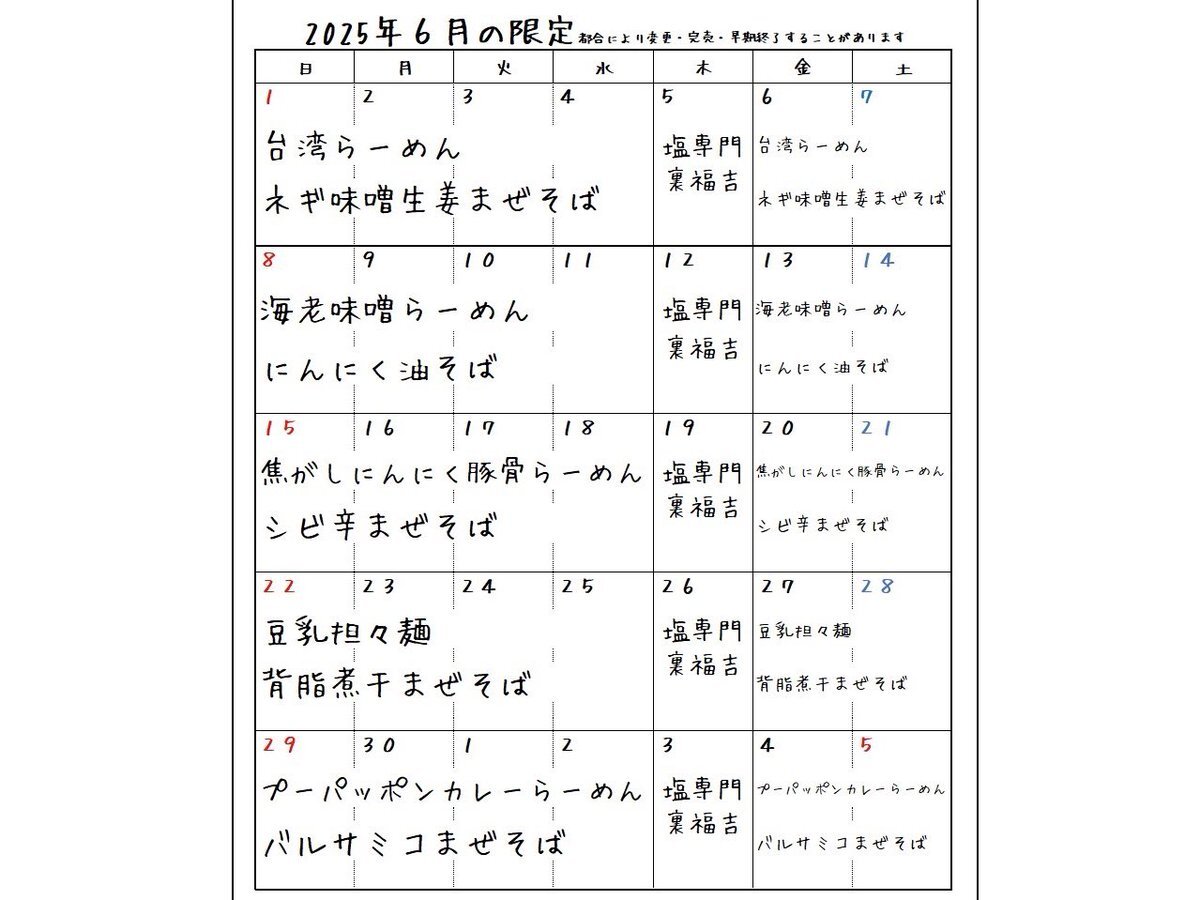 2025年6月の限定 都合により変更・完売・早期終了することがあります
日 月 火 水 木 金 土
1 2 3 4 5 6 7
台湾らーめん 塩専門 台湾らーめん
裏福吉
ネギ味噌生姜まぜそば ネギ味噌生姜まぜそば
8 9 10 11 12 13 14
海老味噌らーめん 塩専門 海老味噌らーめん
裏福吉
にんにく油そば にんにく油そば
15 16 17 18 19 20 21
焦がしにんにく豚骨らーめん 塩専門 焦がしにんにく豚骨らーめん
裏福吉
シビ辛まぜそば シビ辛まぜそば
22 23 24 25 26 27 28
豆乳担々麺 塩専門 豆乳担々麺
裏福吉
背脂煮干まぜそば 背脂煮干まぜそば
29 30 1 2 3 4 5
プーパッポンカレーらーめん 塩専門 プーパッポンカレーらーめん
裏福吉
バルサミコまぜそば バルサミコまぜそば